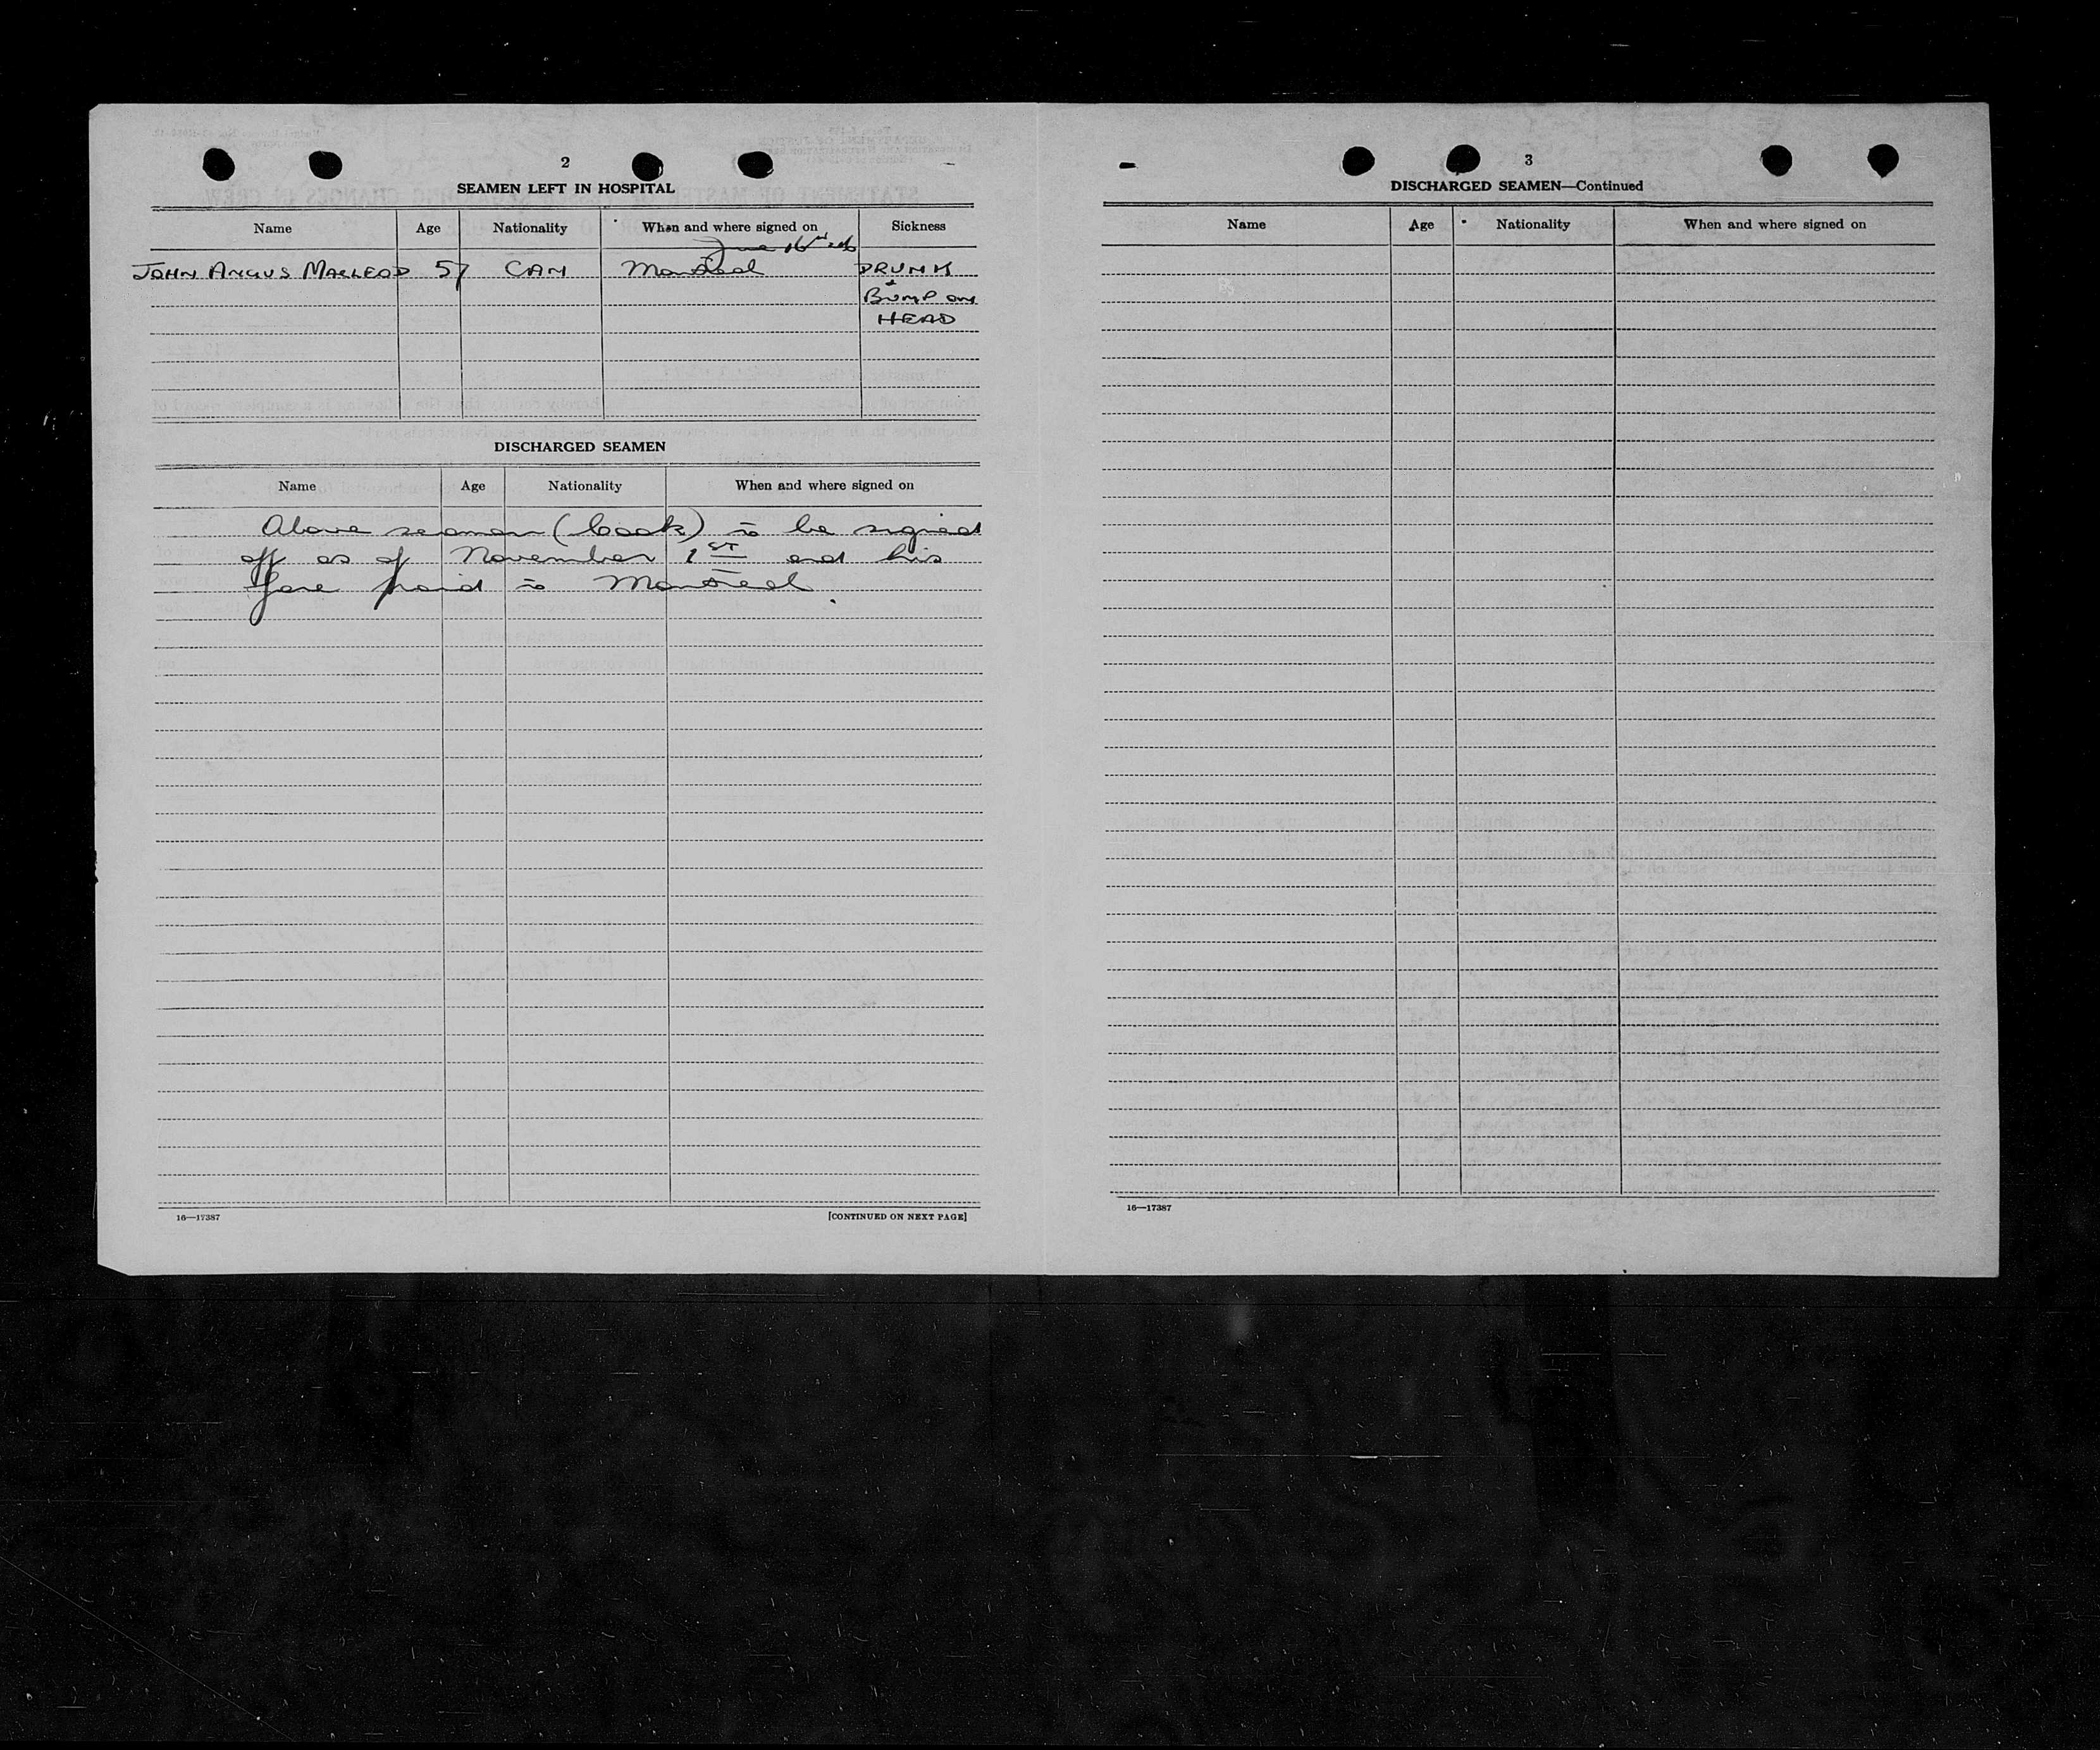 2
SEAMEN LEFT IN HOSPITAL
Name Age Nationality When and where signed on Sickness
June 16
JOHN ANGUS MACLEOD 57 CAN Montreal DRUNK
+
BUMP ON
HEAD
DISCHARGED SEAMEN
Name Age Nationality When and where signed on
Above seaman (Cook) to be signed
off as of November 1ST and his
fare paid to Montreal.
16—17387 [CONTINUED ON NEXT PAGE]
3
DISCHARGED SEAMEN—Continued
Name Age Nationality When and where signed on
16—17387